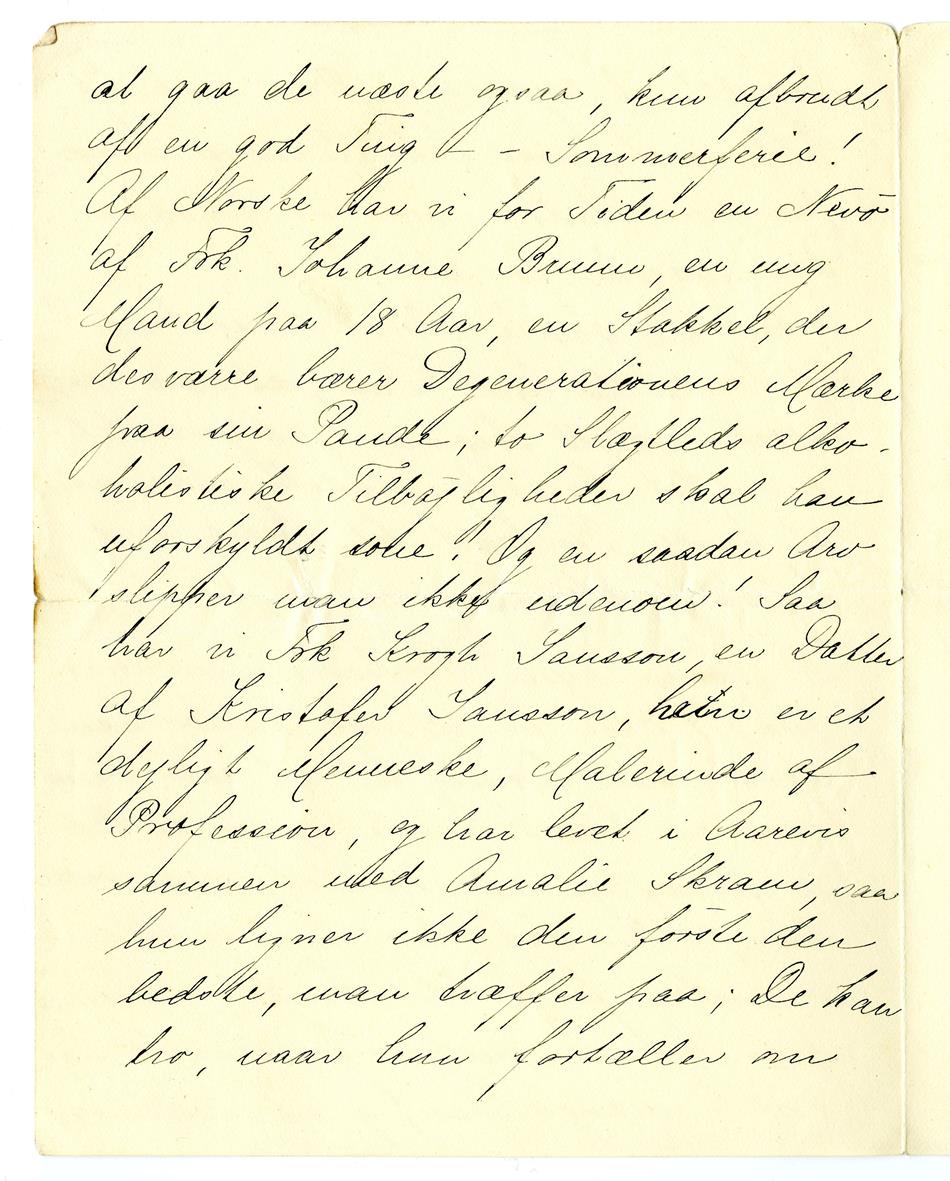 at gaa de næste ogsaa, kun afbrudt
af en god Ting – – Sommerferie!
Af Norske har vi for Tiden en Nevö
af Frk. Johanne Bruun, en ung
Mand paa 18 Aar, en Stakkel, der
desværre bærer Degenerationens Mærke
paa sin Pande; to Slægtleds alko-
holistiske Tilböjligheder skal han
uforskyldt sone! Og en saadan Arv
slipper man ikke udenom! Saa
har vi Frk Krogh Janson, en Datter
af Kristofer Janson, hun er et
dejligt Menneske, Malerinde af
Profession, og har levet i Aarevis
sammen med Amalie Skram, saa
hun ligner ikke den förste den
bedste, man træffer paa; De kan
tro, naar hun fortæller om